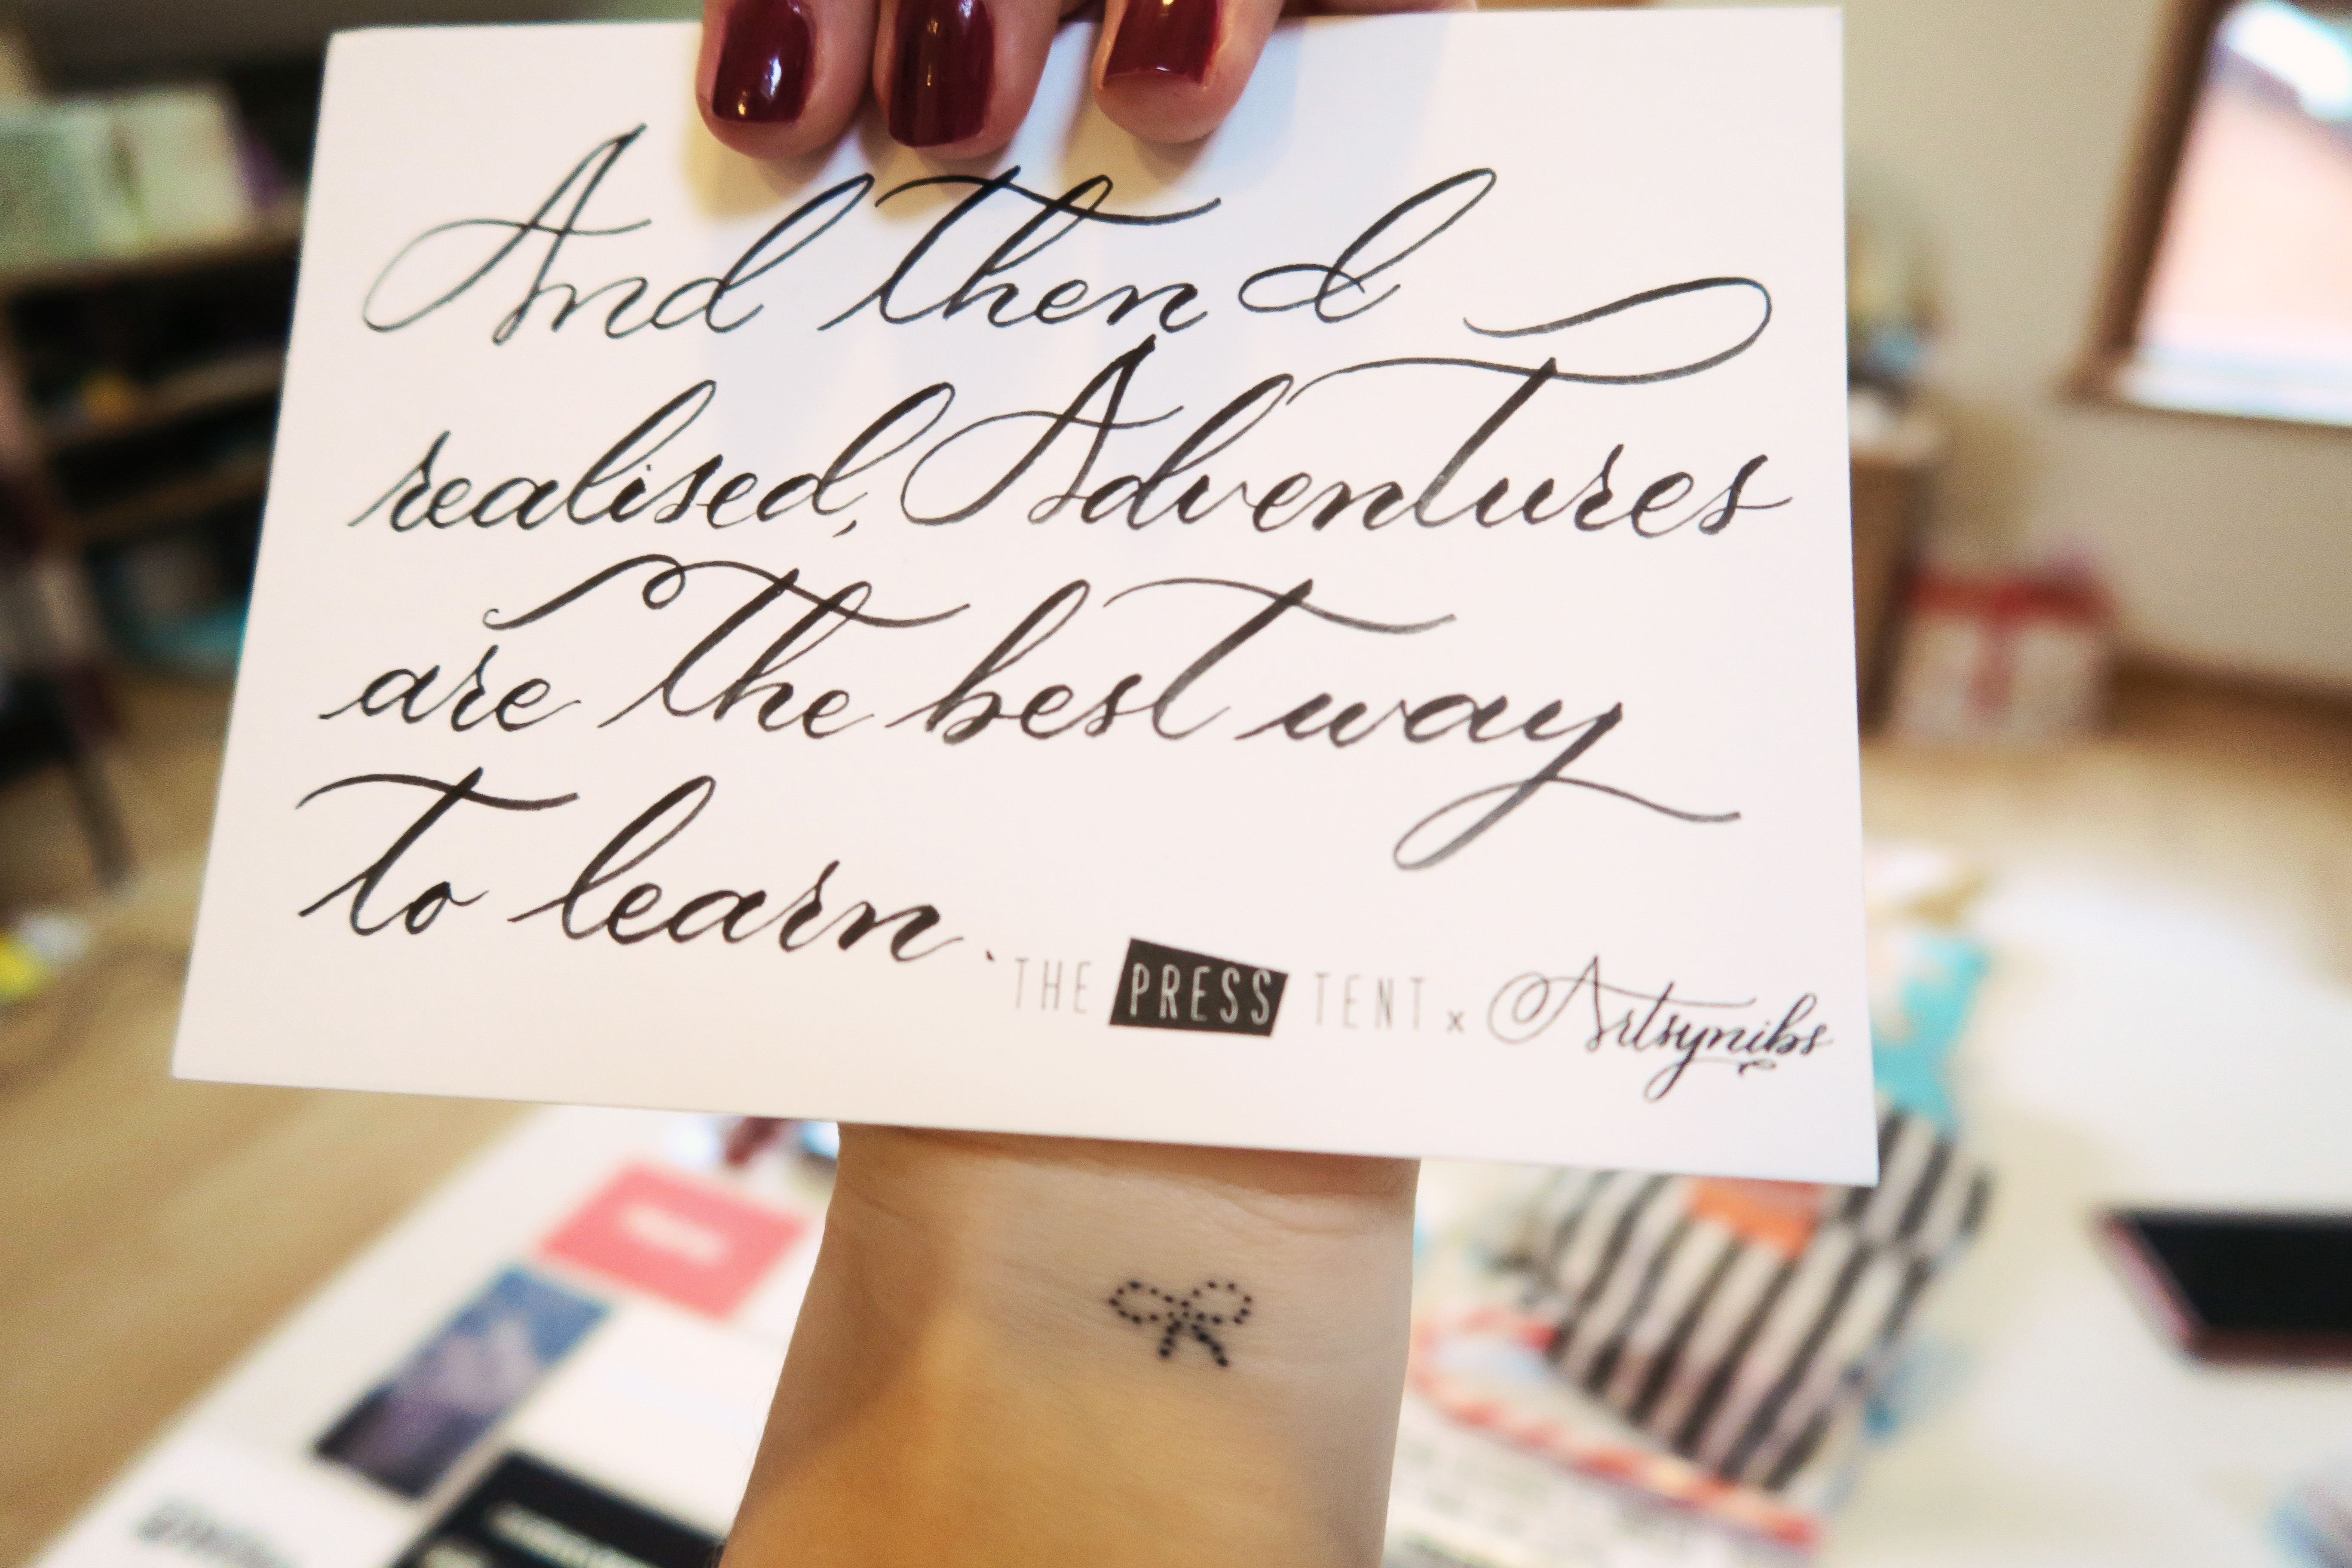 And then I
realised, Adventures
are the best way
to learn.
THE PRESS TENT x Artsynibs